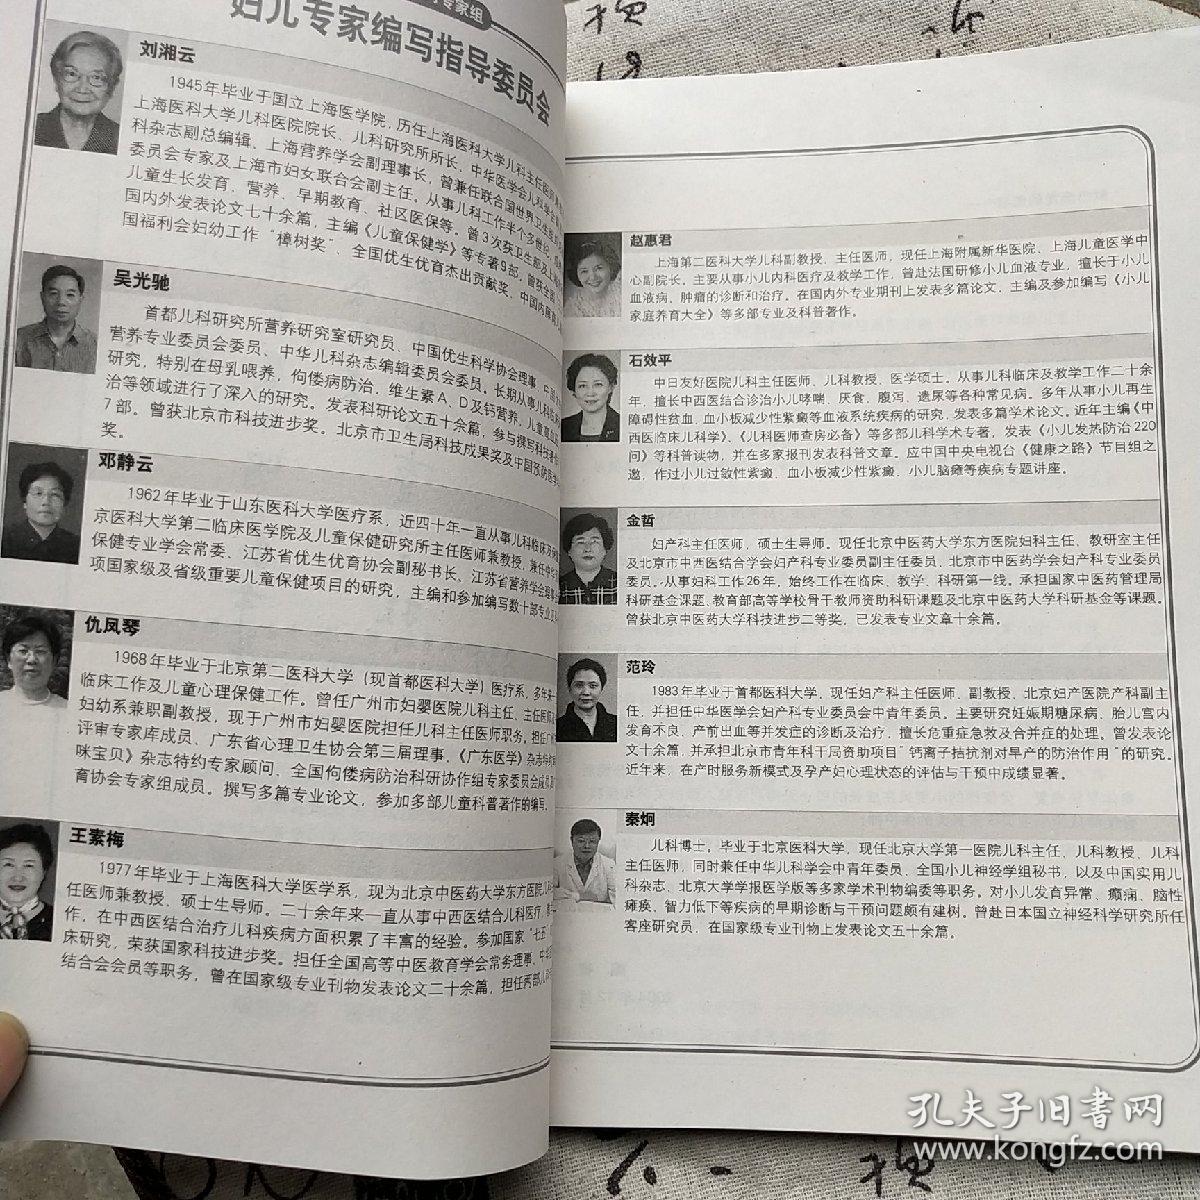 专家组
妇儿专家编写指导委员会
刘湘云
1945年毕业于国立上海医学院,历任上海医科大学儿科主任医师
上海医科大学儿科医院院长、儿科研究所所长,中华医学会儿科学会
科杂志副总编辑、上海营养学会副理事长,曾兼任联合国世界卫生
委员会专家及上海市妇女联合会副主任。从事儿科工作半个多世纪,
儿童生长发育、营养、早期教育、社区医保等。曾3次获卫生部及上海
国内外发表论文七十余篇,主编《儿童保健学》等专著9部。曾获全国
国福利会妇幼工作“樟树奖”、全国优生优育杰出贡献奖、中国
吴光驰
首都儿科研究所营养研究室研究员、中国优生科学协会理事、中国
营养专业委员会委员、中华儿科杂志编辑委员会委员。长期从事儿科
研究,特别在母乳喂养,佝偻病防治,维生素A、D及钙营养,儿童
治等领域进行了深入的研究。发表科研论文五十余篇,参与撰写科
7部。曾获北京市科技进步奖。北京市卫生局科技成果奖及中国预防医学
奖。
邓静云
1962年毕业于山东医科大学医疗系,近四十年一直从事儿科临床及
京医科大学第二临床医学院及儿童保健研究所主任医师兼教授,兼任
保健专业学会常委、江苏省优生优育协会副秘书长,江苏省营养学会理事
项国家级及省级重要儿童保健项目的研究,主编和参加编写数十部专业
仇凤琴
1968年毕业于北京第二医科大学(现首都医科大学)医疗系,多年来一
临床工作及儿童心理保健工作。曾任广州市妇婴医院儿科主任、主任医师
妇幼系兼职副教授,现于广州市妇婴医院担任儿科主任医师职务。担任广
评审专家库成员、广东省心理卫生协会第三届理事,《广东医学》杂志
咪宝贝》杂志特约专家顾问、全国佝偻病防治科研协作组专家委员会
育协会专家组成员。撰写多篇专业论文,参加多部儿童科普著作的编写。
王素梅
1977年毕业于上海医科大学医学系,现为北京中医药大学东方医院儿科
任医师兼教授、硕士生导师。二十余年来一直从事中西医结合儿科医疗、
作,在中西医结合治疗儿科疾病方面积累了丰富的经验。参加国家“七五”
床研究,荣获国家科技进步奖。担任全国高等中医教育学会常务理事、中华
结合会会员等职务,曾在国家级专业刊物发表论文二十余篇,担任两部儿科
赵惠君
上海第二医科大学儿科副教授、主任医师,现任上海附属新华医院、上海儿童医学中
心副院长,主要从事小儿内科医疗及教学工作,曾赴法国研修小儿血液专业,擅长于小儿
血液病、肿瘤的诊断和治疗。在国内外专业期刊上发表多篇论文,主编及参加编写《小儿
家庭养育大全》等多部专业及科普著作。
石效平
中日友好医院儿科主任医师、儿科教授、医学硕士。从事儿科临床及教学工作二十余
年,擅长中西医结合诊治小儿哮喘、厌食、腹泻、遗尿等各种常见病。多年从事小儿再生
障碍性贫血、血小板减少性紫癜等血液系统疾病的研究,发表多篇学术论文。近年主编《中
西医临床儿科学》、《儿科医师查房必备》等多部儿科学术专著,发表《小儿发热防治220
问》等科普读物,并在多家报刊发表科普文章。应中国中央电视台《健康之路》节目组之
邀,作过小儿过敏性紫癜、血小板减少性紫癜、小儿脑瘫等疾病专题讲座。
金哲
妇产科主任医师,硕士生导师。现任北京中医药大学东方医院妇科主任、教研室主任
及北京市中西医结合学会妇产科专业委员副主任委员、北京市中医药学会妇产科专业委员
委员。从事妇科工作26年,始终工作在临床、教学、科研第一线。承担国家中医药管理局
科研基金课题、教育部高等学校骨干教师资助科研课题及北京中医药大学科研基金等课题。
曾获北京中医药大学科技进步二等奖,已发表专业文章十余篇。
范玲
1983年毕业于首都医科大学。现任妇产科主任医师、副教授,北京妇产医院产科副主
任,并担任中华医学会妇产科专业委员会中青年委员。主要研究妊娠期糖尿病、胎儿宫内
发育不良、产前出血等并发症的诊断及治疗,擅长危重症急救及合并症的处理。曾发表论
文十余篇,并承担北京市青年科干局资助项目“钙离子拮抗剂对早产的防治作用”的研究。
近年来,在产时服务新模式及孕产妇心理状态的评估与干预中成绩显著。
秦炯
儿科博士,毕业于北京医科大学,现任北京大学第一医院儿科主任、儿科教授、儿科
主任医师,同时兼任中华儿科学会中青年委员、全国小儿神经学组秘书,以及中国实用儿
科杂志、北京大学学报医学版等多家学术刊物编委等职务。对小儿发育异常、癫痫、脑性
瘫痪、智力低下等疾病的早期诊断与干预问题颇有建树。曾赴日本国立神经科学研究所任
客座研究员,在国家级专业刊物上发表论文五十余篇。
孔夫子旧书网
www.kongfz.com